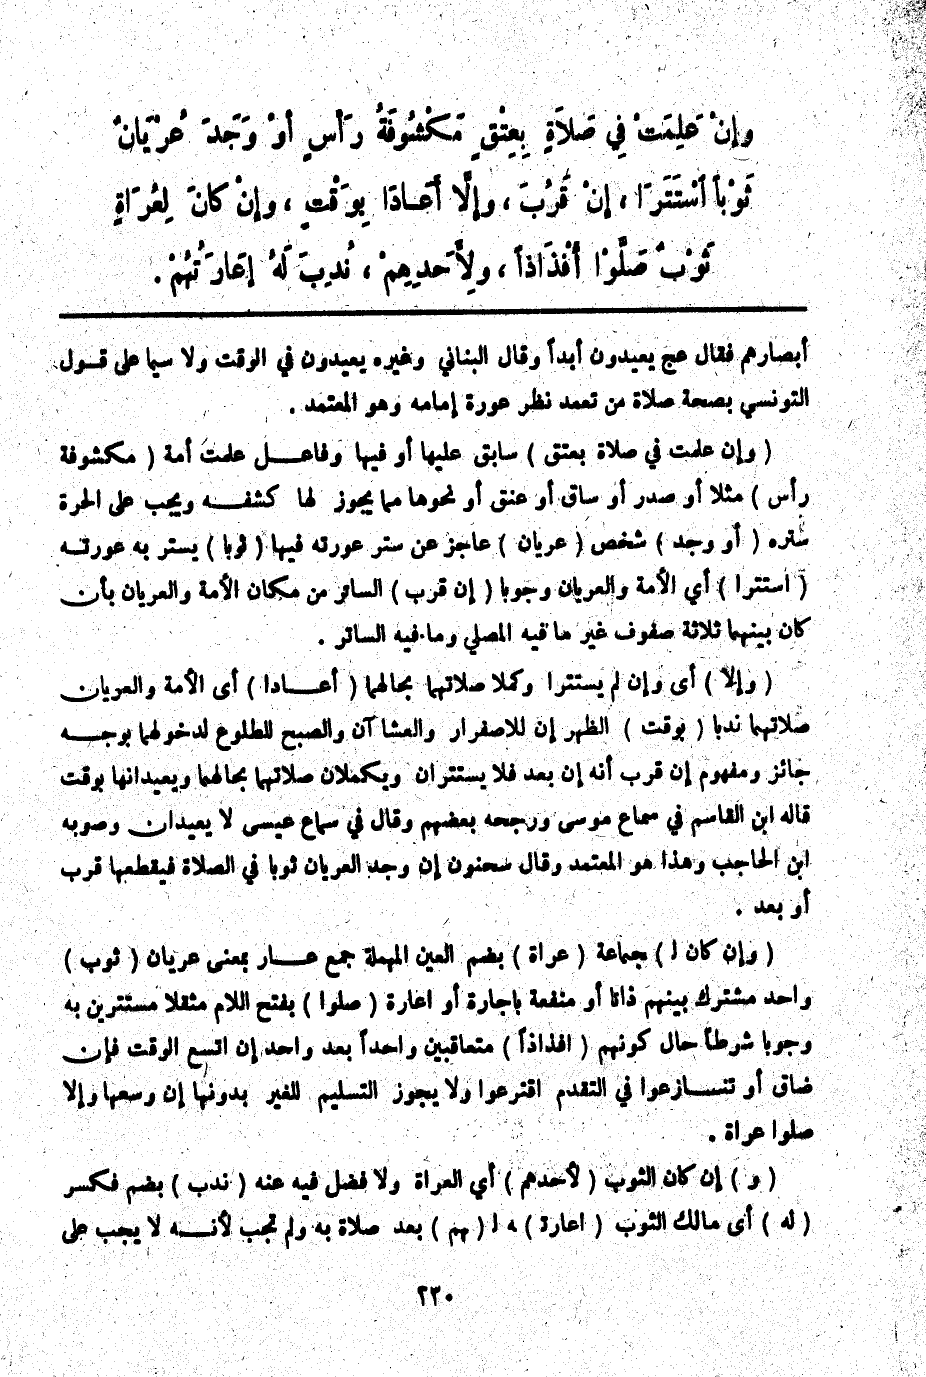 وإِنْ عَلِمَتْ فِي صَلاَةٍ بِعِتْقٍ مَكْشُوفَةُ رَأْسٍ أَوْ وَجَدَ عُرْيَانٌ
ثَوْباً اَسْتَتَرَا ، إِنْ قَرُبَ ، وإِلَّا أَعَادَا بِوَقْتٍ ، وإِنْ كَانَ لِعُرَاةٍ
ثَوْبٌ صَلَّوْا أَفْذَاذاً ، ولِأَحَدِهِمْ ، نُدِبَ لَهُ إِعَارَتُهُمْ .
أبصارهم فقال عج يعيدون أبداً وقال البناني وغيره يعيدون في الوقت ولا سيما على قـول
التونسي بصحة صلاة من تعمد نظر عورة إمامه وهو المعتمد .
( وإن علمت في صلاة بعتق ) سابق عليها أو فيها وفاعـــل علمت أمة ( مكشوفة
رأس ) مثلا أو صدر أو ساق أو عنق أو نحوها مما يجوز لها كشفـــه ويجب على الحرة
ستره ( أو وجد ) شخص ( عريان ) عاجز عن ستر عورته فيها ( ثوبا ) يستر به عورتـه
( استترا ) أي الأمة والعريان وجوبا ( إن قرب ) الساتر من مكان الأمة والعريان بأن
كان بينهما ثلاثة صفوف غير ما فيه المصلي وما فيه الساتر .
( وإلا ) أى وإن لم يستترا وكملا صلاتهما بحالهما ( أعــادا ) أى الأمة والعريان
صلاتهما ندبا ( بوقت ) الظهر إن للاصفرار والعشاآن والصبح للطلوع لدخولهما بوجـــه
جائز ومفهوم إن قرب أنه إن بعد فلا يستتران ويكملان صلاتهما بحالهما ويعيدانها بوقت
قاله ابن القاسم في سماع موسى ورجحه بعضهم وقال في سماع عيسى لا يعيدان وصوبه
ابن الحاجب وهذا هو المعتمد وقال سحنون إن وجد العريان ثوبا في الصلاة فيقطعها قرب
أو بعد .
( وإن كان لـ ) جماعة ( عراة ) بضم العين المهملة جمع عـــار بمعنى عريان ( ثوب )
واحد مشترك بينهم ذاتا أو منفعة بإجارة أو اعارة ( صلوا ) بفتح اللام مثقلا مستترين به
وجوبا شرطاً حال كونهم ( افذاذاً ) متعاقبين واحداً بعد واحد إن اتسع الوقت فإن
ضاق أو تنـــازعوا في التقدم اقترعوا ولا يجوز التسليم للغير بدونها إن وسعها وإلا
صلوا عراة .
( و ) إن كان الثوب ( لأحدهم ) أي العراة ولا فضل فيه عنه ( ندب ) بضم فكسر
( له ) أى مالك الثوب ( اعارتـ ) ـه لـ ( ـهم ) بعد صلاة به ولم تجب لأنـــه لا يجب على
٢٣٠